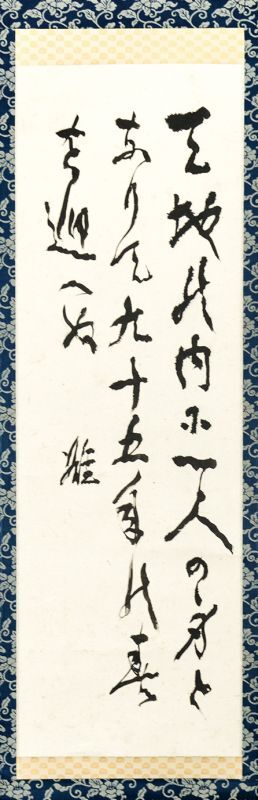 天地の内に一人の男と
ありて九十五年の春
を迎へぬ